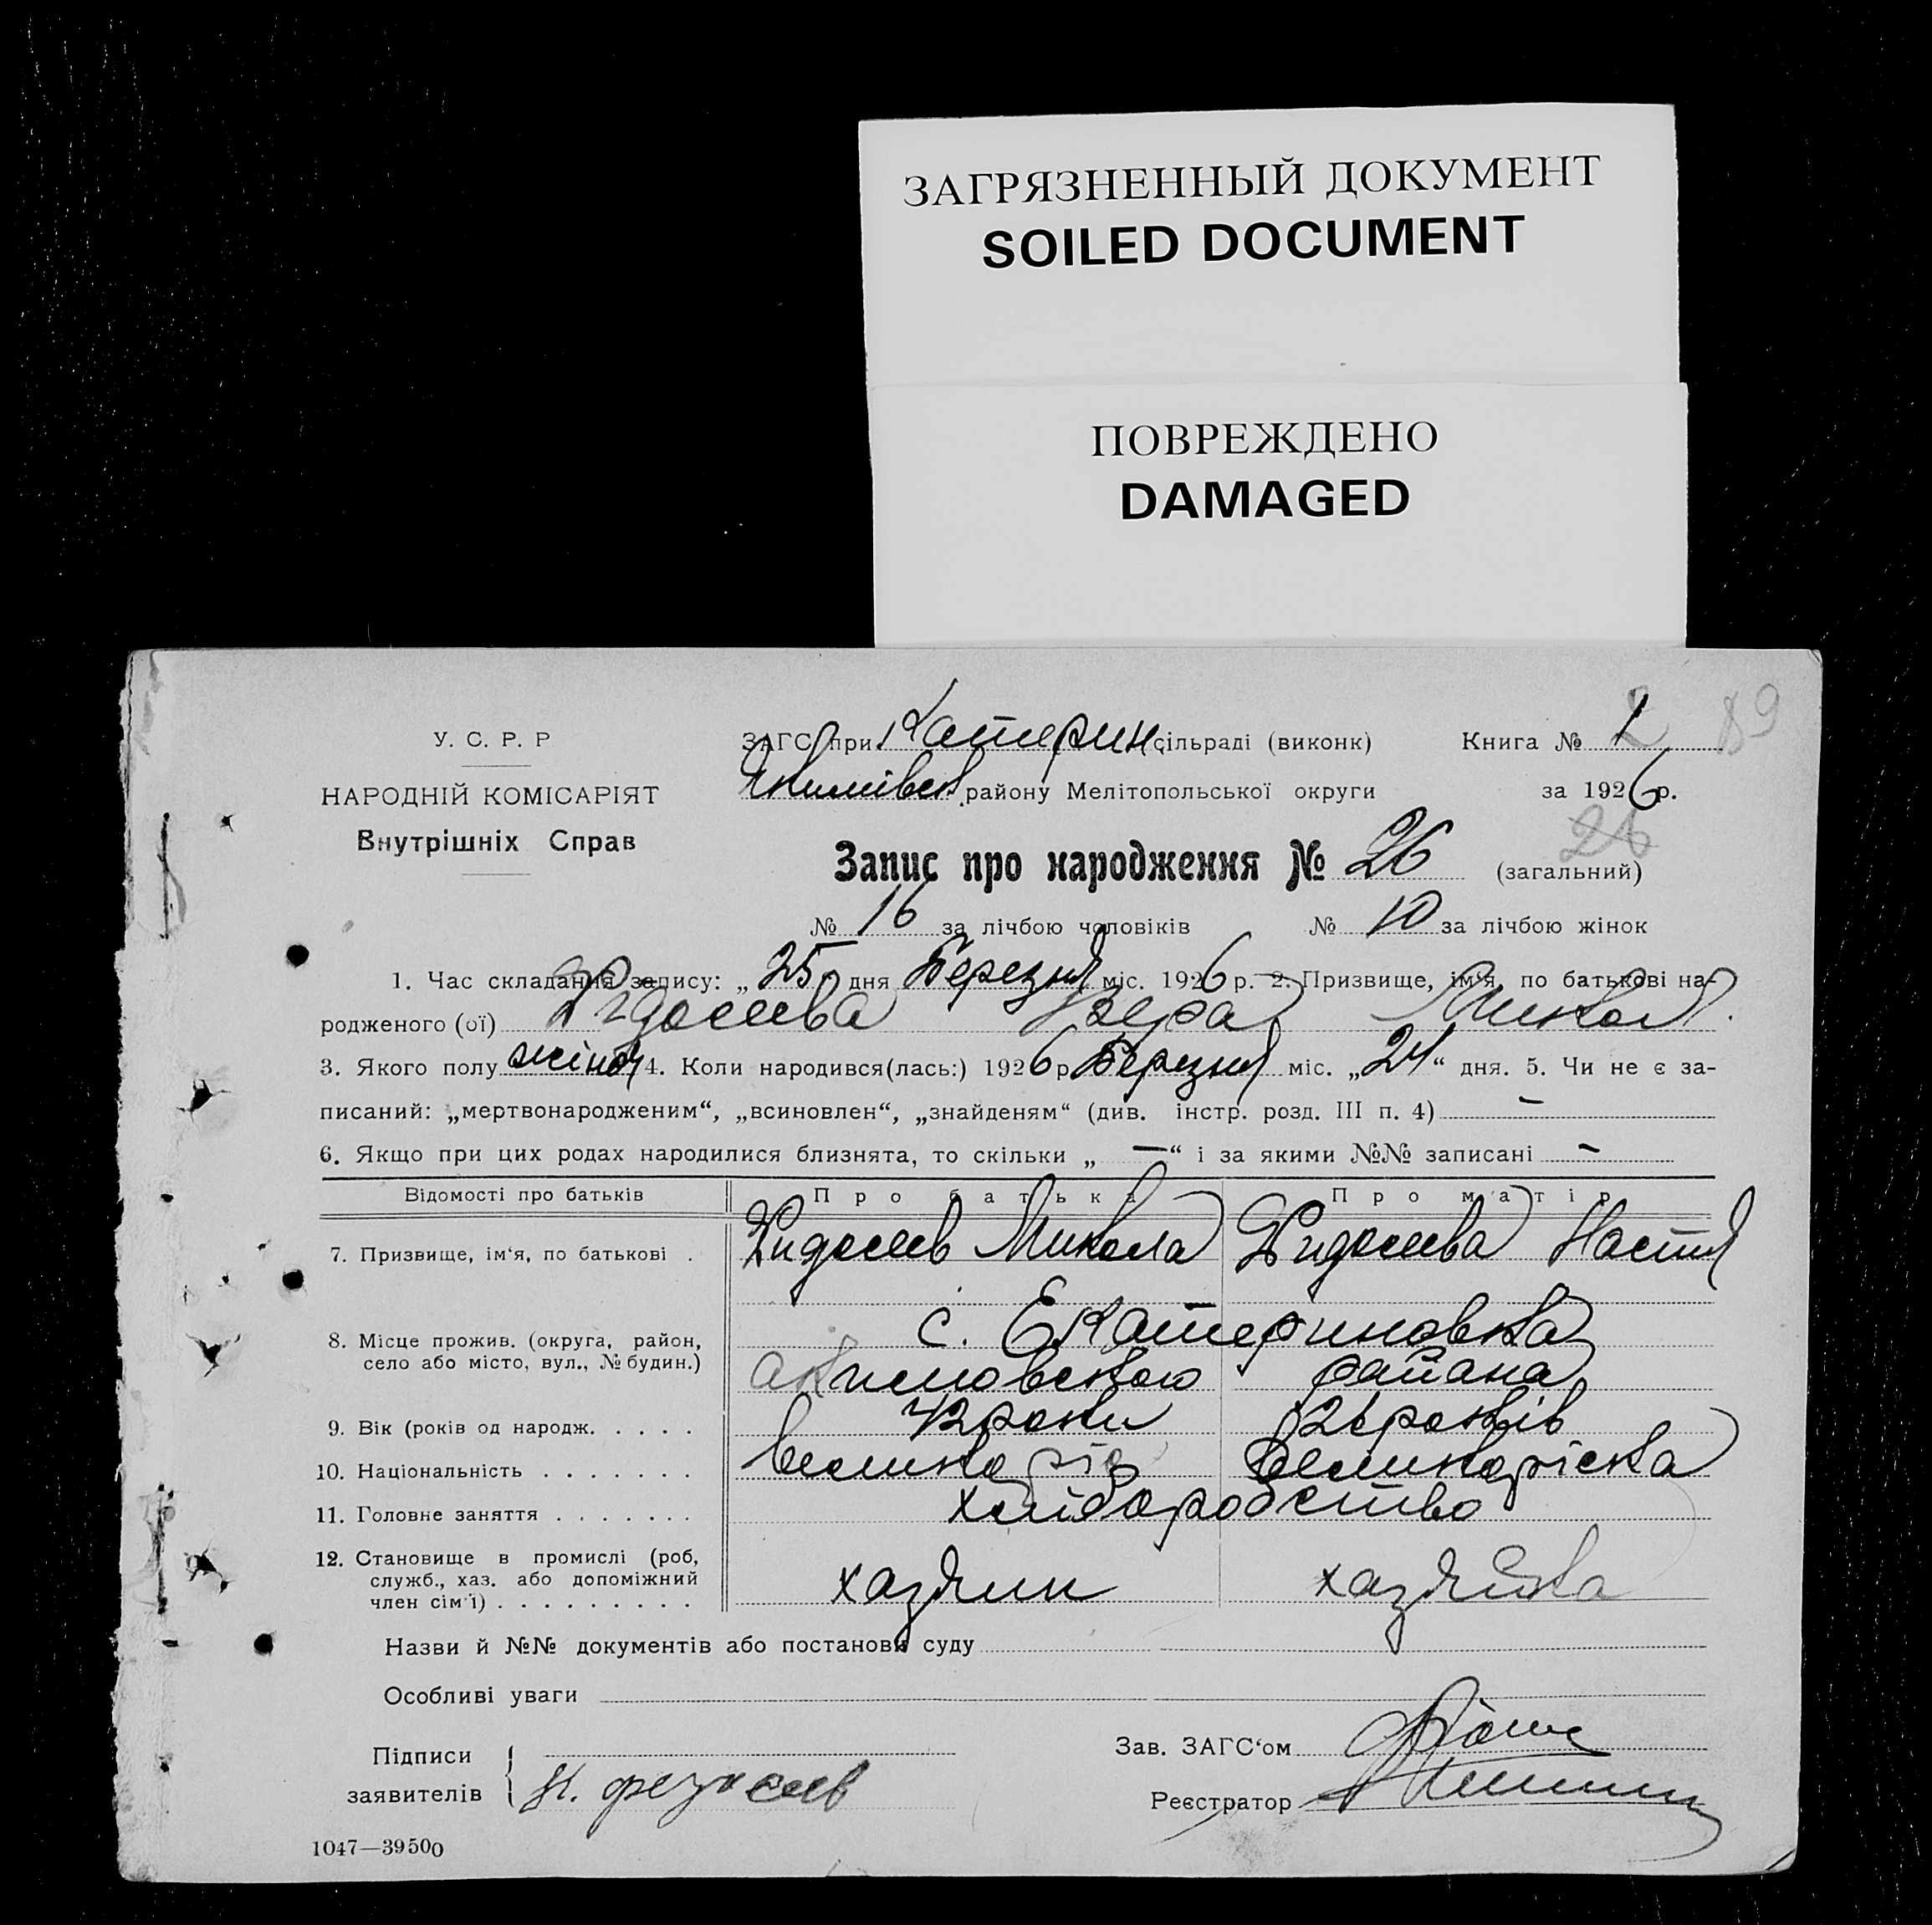 ЗАГРЯЗНЕННЫЙ ДОКУМЕНТ
SOILED DOCUMENT
ПОВРЕЖДЕНО
DAMAGED
89
У. С. Р. Р
НАРОДНІЙ КОМІСАРІЯТ
Внутрішніх Справ
ЗАГС при Катерин. сільраді (виконк) Книга № 1
Якимівск. району Мелітопольської округи за 1926 р.
26
Запис про народження № 26 (загальний)
№ 16 за лічбою чоловіків № 10 за лічбою жінок
1. Час складання запису: „25" дня Березня міс. 1926 р. 2. Призвище, ім‘я, по батькові на-
родженого (ої) Вера Микол.
3. Якого полу жіноч 4. Коли народився(лась:) 1926 р Березня міс. „24“ дня. 5. Чи не є за-
писаний: „мертвонародженим“, „всиновлен“, „знайденям“ (див. інстр. розд. III п. 4) –
6. Якщо при цих родах народилися близнята, то скільки „ — “ і за якими №№ записані –
Відомості про батьків Про батька Про матір
7. Призвище, ім‘я, по батькові . Микола Настя
8. Місце прожив. (округа, район,
село або місто, вул., № будин.)
с. Екатериновка
Акимовского района
9. Вік (років од народж. . . . . 42 роки 26 років
10. Національність . . . . . . . великорос великоріска
11. Головне заняття . . . . . . . хліборобство
12. Становище в промислі (роб,
служб., хаз. або допоміжний
член сім‘ї) . . . . . . . . . хазяин хазяйка
Назви й №№ документів або постанови суду
Особливі уваги
Підписи
заявителів Н.
Зав. ЗАГС‘ом
Реєстратор
1047—39500